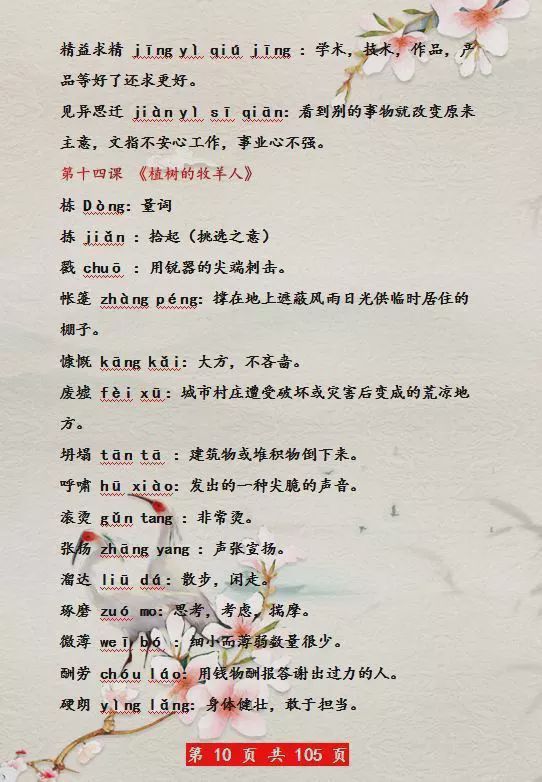 精益求精 jīng yì qiú jīng ：学术，技术，作品，产
品等好了还求更好。
见异思迁 jiàn yì sī qiān：看到别的事物就改变原来
主意，文指不安心工作，事业心不强。
第十四课 《植树的牧羊人》
栋 Dòng：量词
拣 jiǎn ：拾起（挑选之意）
戳 chuō ：用锐器的尖端刺击。
帐篷 zhàng péng：撑在地上遮蔽风雨日光供临时居住的
棚子。
慷慨 kāng kǎi：大方，不吝啬。
废墟 fèi xū：城市村庄遭受破坏或灾害后变成的荒凉地
方。
坍塌 tān tā ：建筑物或堆积物倒下来。
呼啸 hū xiào：发出的一种尖脆的声音。
滚烫 gǔn tang ：非常烫。
张扬 zhāng yang ：声张宣扬。
溜达 liū dá：散步，闲走。
琢磨 zuó mo：思考，考虑，揣摩。
微薄 weī bó ：细小而薄弱数量很少。
酬劳 chóu láo：用钱物酬报答谢出过力的人。
硬朗 yìng lǎng：身体健壮，敢于担当。
第 10 页 共 105 页